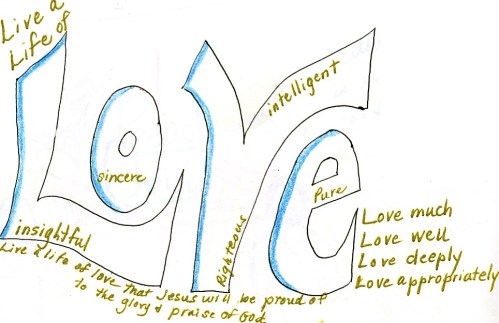 Live a
Life of
LOVE
sincere
intelligent
Pure
insightful
Righteous
Love much
Love well
Love deeply
Love appropriately
Live a life of love that Jesus will be proud of
to the glory & praise of God